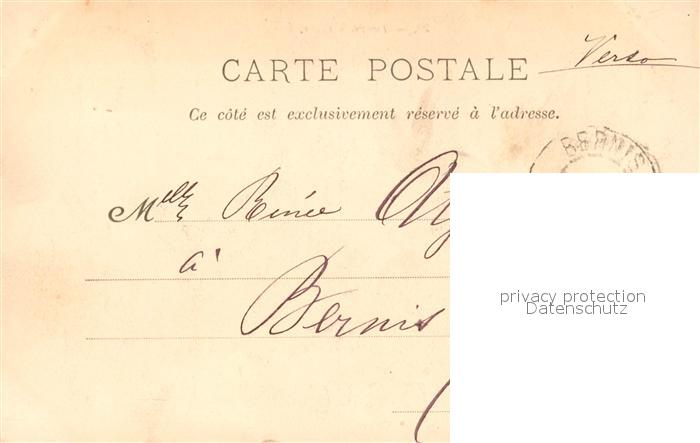 CARTE POSTALE Verso
Ce côté est exclusivement réservé à l'adresse.
BERNIS
Melle Renée
à
Bernis
privacy protection
Datenschutz